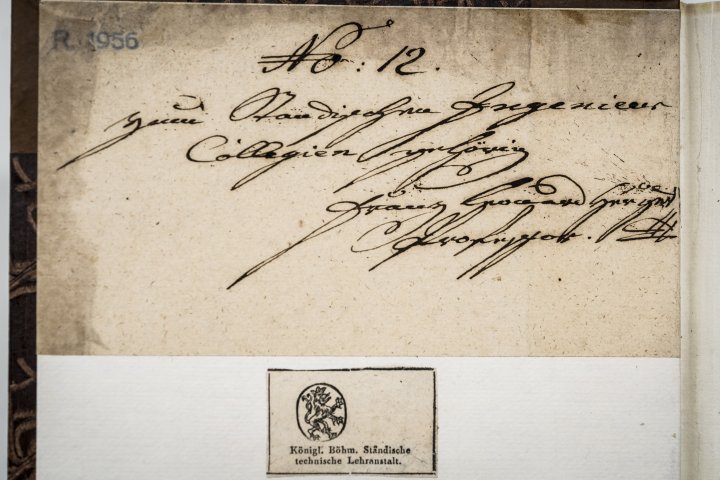 R. 1956
No: 12.
zum Ständischen Ingenieur
Collegien gehörig
Franz Leonard Herget
Professor.
Königl. Böhm. Ständische
technische Lehranstalt.